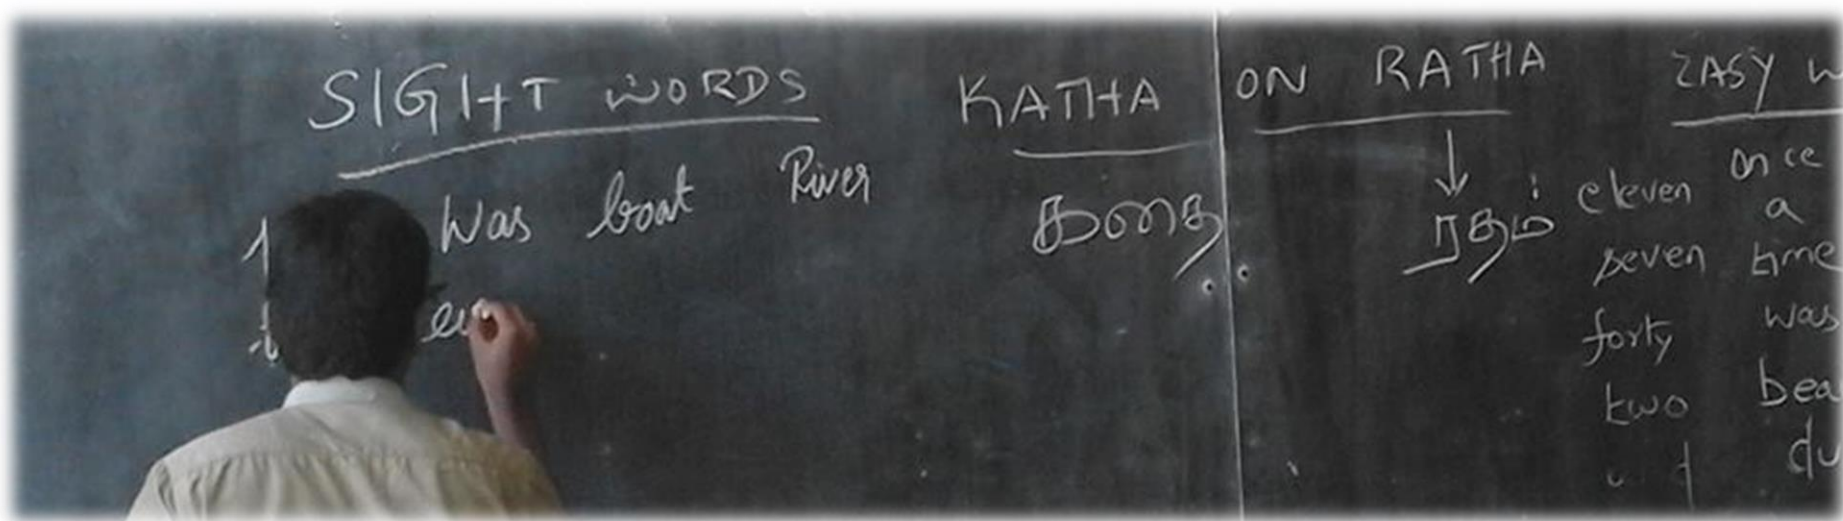 SIGHT WORDS
Was boat River
KATHA ON RATHA
கதை
ரதம்
EASY
eleven
seven
forty
two
once
a
time
was